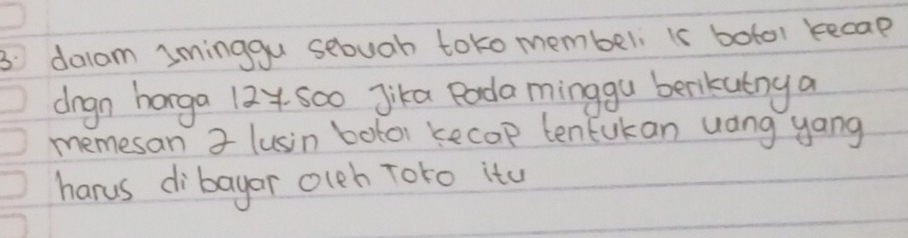 3. dalam 1minggu sebuah toko membeli 15 botol kecap
dngn harga 127.500 Jika Pada minggu berikutnya
memesan 2 lusin botol kecap tentukan uang yang
harus di bayar oleh Toko itu